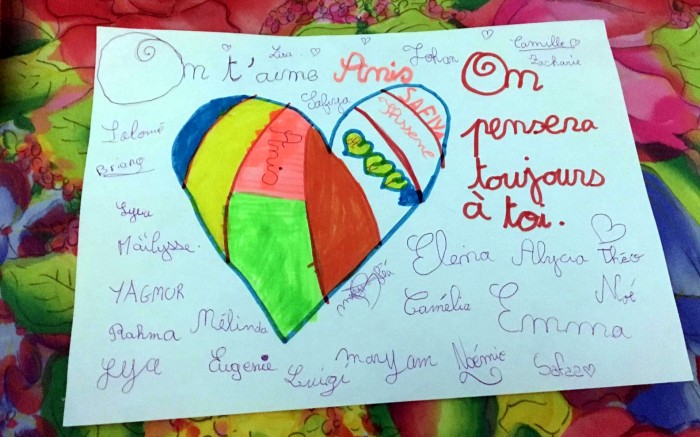 On t'aime Anis
On
pensera
toujours
à toi.
Lisa
Johan
Camille
Zacharie
Safiya
SAFIYA
Anis
Salomé
Briang
Lyea
Maïlysse.
YAGMUR
Rahma
Mélinda
Lya
Eugenie
Luigi
Maryam
Noémie
Safaa
Elena
Alycia
Théo
Noé
Camélia
Emma
Léa